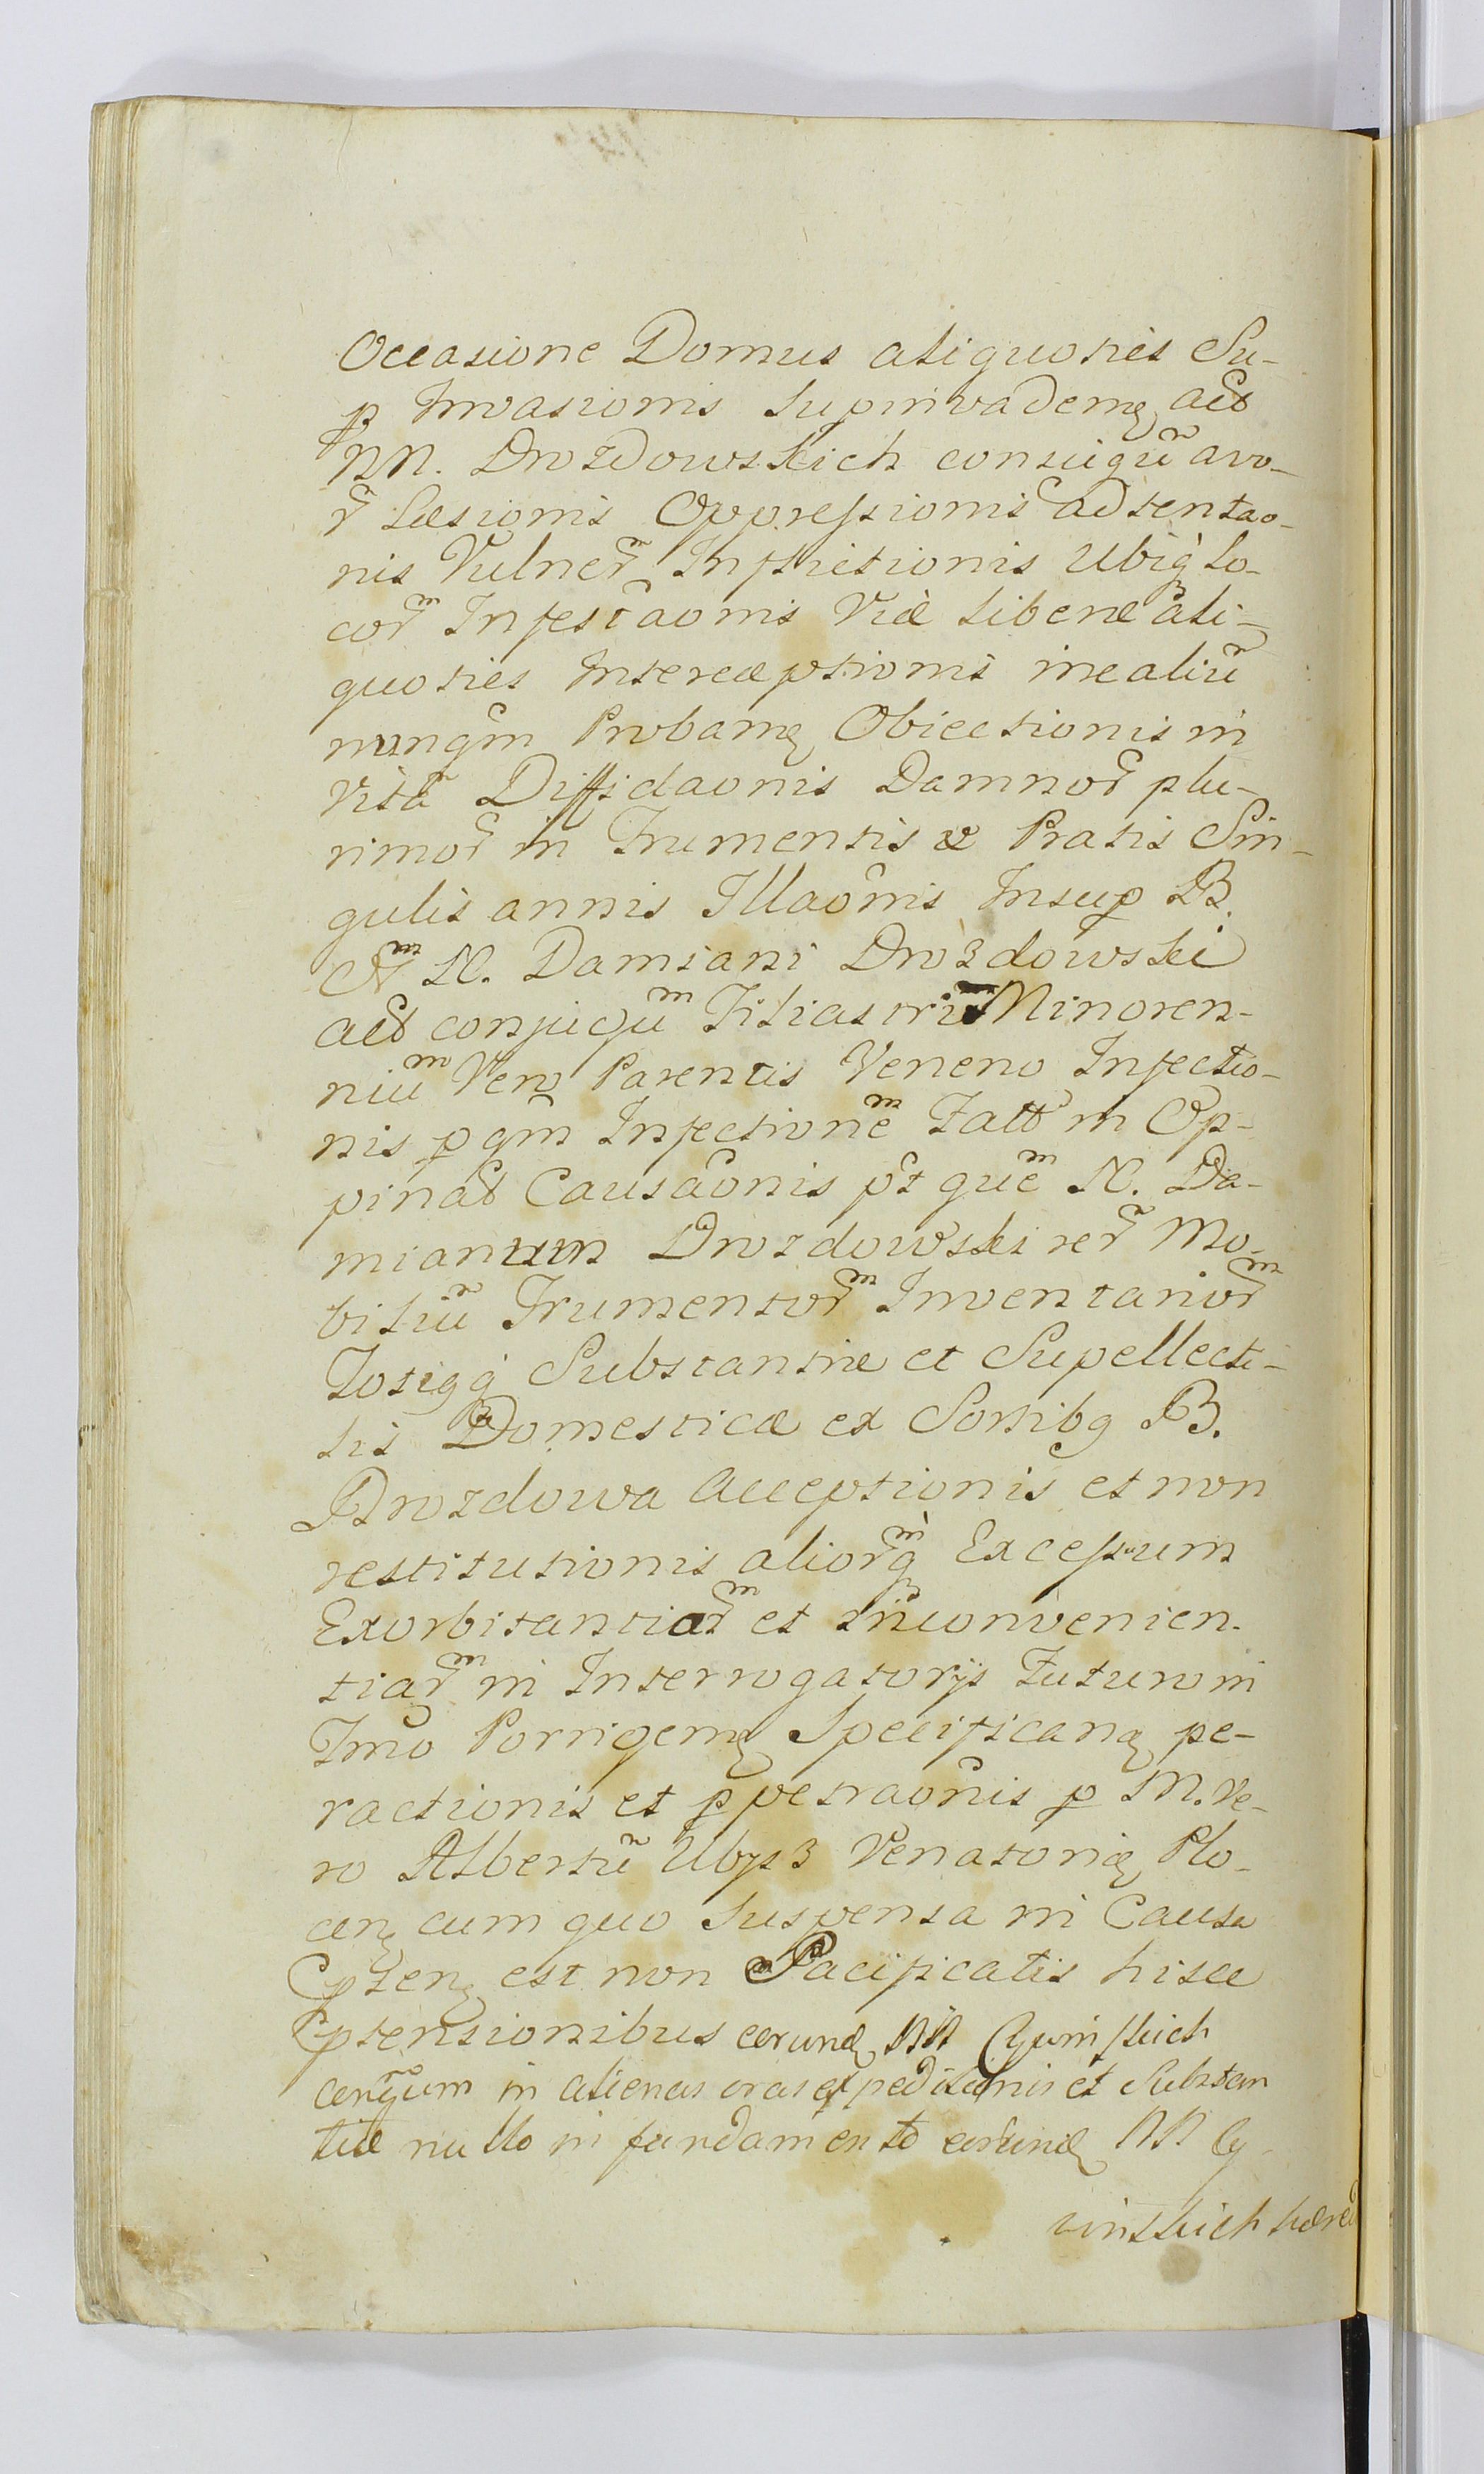 Occasione Domus aliquoties Su-
p Invasionis Supinvadenę act
NN. Drozdowskich conjugũ avo-
r̃ Læsionis Oppressionis adtentao-
nis Vulner̃ Inflictionis Ubiq̀ Lo-
cor̃ Infestaõnis Viæ liberæ ali-
quoties Intercæptionis inealiũ
nunqm̃ Probanę Obiectionis in
Vitã Diffidaonis Damnor̃ plu-
rimor̃ in Frumentis æ Pratis Sin-
gulis annis Illaõnis Insup B.
N. Damiani Drozdowski
act conjugũ Filiastri Minoren-
niũ Vero Parentis Veneno Infectio-
nis p qm̃ Infectionẽ Fatt in Op-
pinat Causaõnis pt quẽ N. Da-
mianum Drozdowski rer̃ Mo-
biliũ Frumentor̃ Inventarior̃
Totiqq̀ Substantiæ et Supellecti-
lis Domesticæ ex Sortibq B.
Drozdowa Acceptionis et non
restitutionis aliorq̃ Excessum
Exorbitantiar̃ et inconvenien-
tiar̃ in Interrogatorijs Futuro in
Tmo Porrigenę Specificanę pe-
ractionis et ppetraõnis p M. Ve-
ro Albertũ Ubysz Venatorię Plo-
cen cum quo Suspensa in Causa
Cptenę est non Pacificatis hisce
Cptensionibus eorundę NN Cywinskich
œrquum in alienas oras expeditionis et Substan
tiæ nullo in fundamento eorundę NN Cy-
winskich hæred